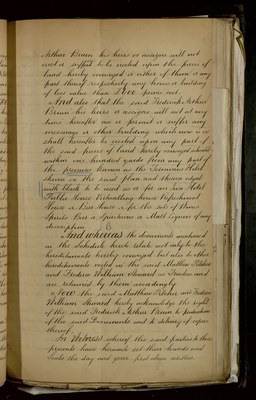 Arthur Bruen his heirs or assigns will not
erect or suffer to be erected upon the piece of
land hereby conveyed or either of them or any
part thereof respectively any house or building
of less value than £400 prime cost.
And also that the said Frederick Arthur
Bruen his heirs or assigns will not at any
time hereafter use or permit or suffer any
messuage or other building which now is or
shall hereafter be erected upon any part of
the said pieces of land hereby conveyed situate
within one hundred yards from any part of
the premises known as the Talavera Hotel
shown in the said plan and thereon edged
with black to be used as or for an Inn Hotel
Public House Victualling house Refreshment
House or Beer house or for the sale of Wines
Spirits Beer or Spirituous or Malt liquors of any
description
And whereas the documents mentioned
in the Schedule hereto relate not only to the
hereditaments hereby conveyed but also to other
hereditaments vested in the said Matthew Ritchie
and Frederic William Steward as Trustees and
are retained by them accordingly
Now the said Matthew Ritchie and Frederic
William Steward hereby acknowledge the right
of the said Frederick Arthur Bruen to production
of the said Documents and to delivery of copies
thereof.
In Witness whereof the said parties to these
presents have hereunto set their hands and
Seals the day and year first above written.